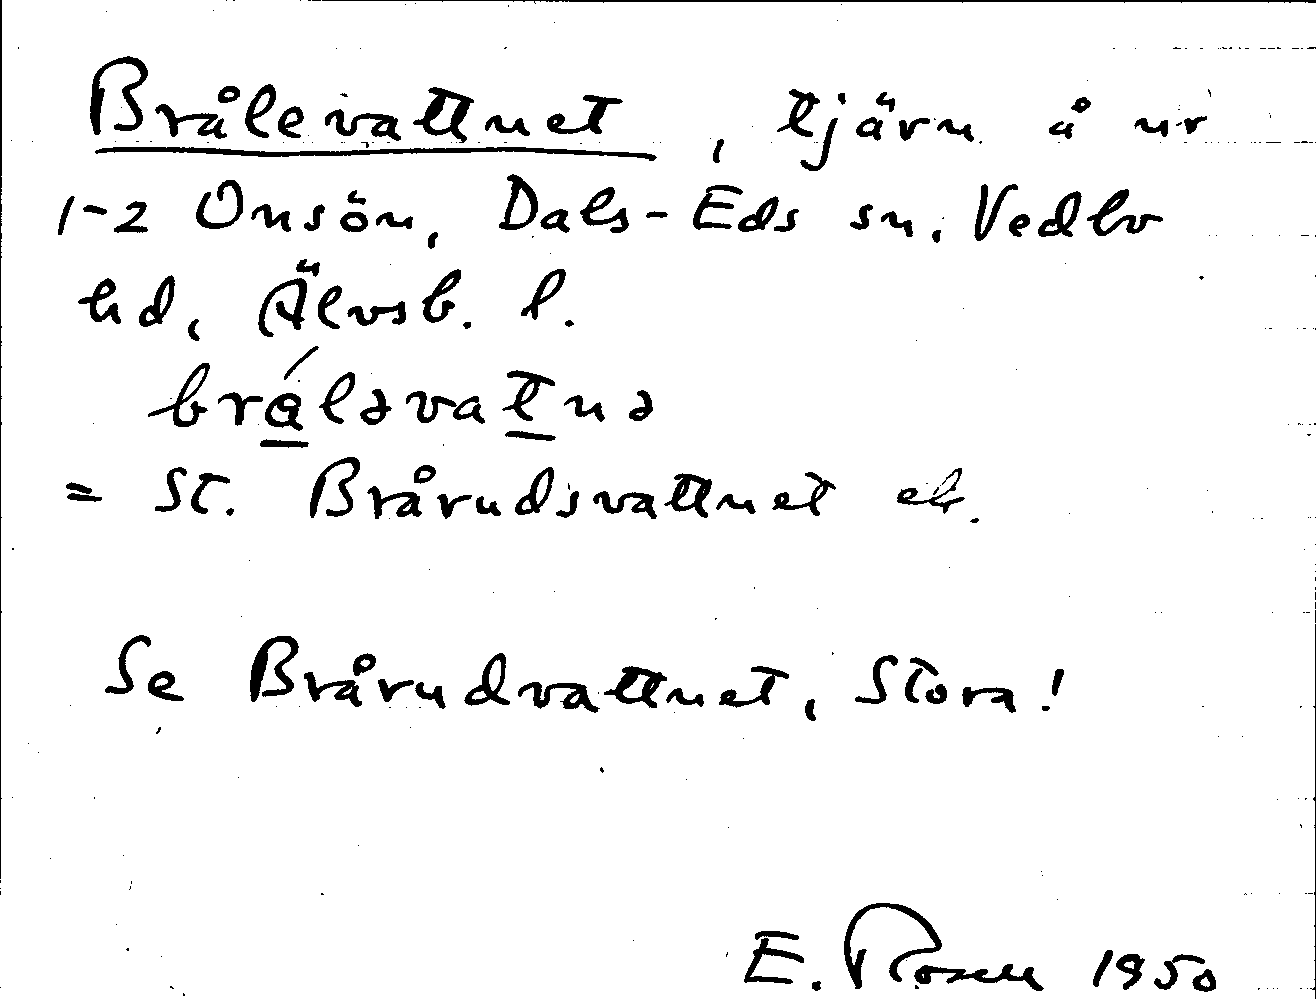 Brålevattnet, tjärn å nr
1-2 Onsön, Dals-Eds sn. Vedbo
hd, Älvsb. l.
brálǝvatnǝ
= St. Brårudsvattnet ek.
Se Brårudvattnet, Stora!
E. Rosell 1950